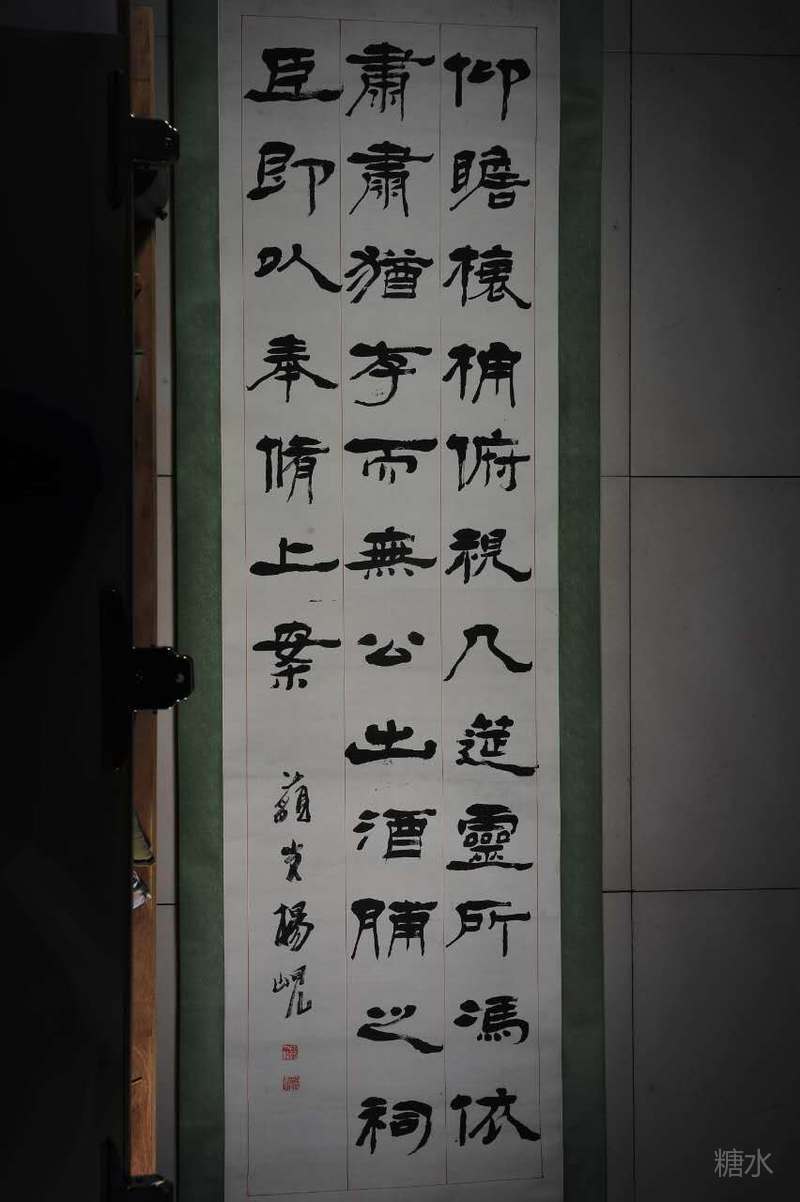 仰瞻榱桷俯視几筵靈所馮依
肅肅猶存而無公出酒脯之祠
臣即以奉脩上案
藐叟楊峴
糖水